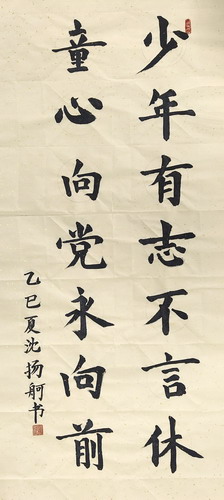 少年有志不言休
童心向党永向前
乙巳夏沈扬舸书